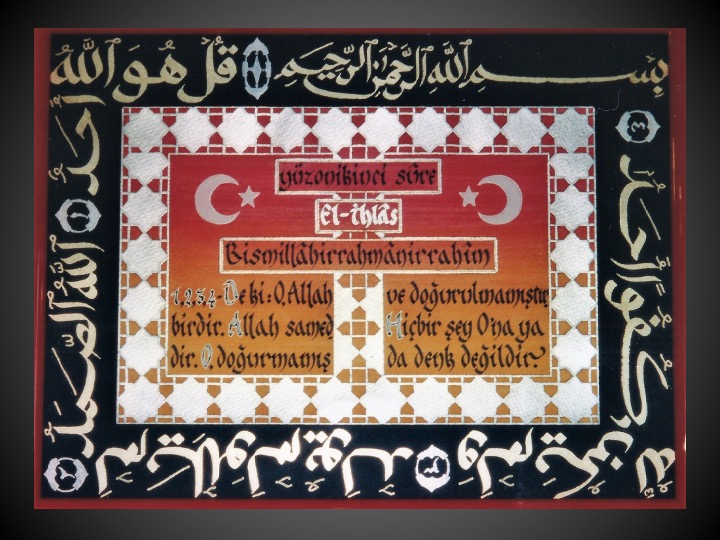 بِسْمِ اللّٰهِ الرَّحْمٰنِ الرَّحِيمِ ۝ قُلْ هُوَ اللّٰهُ
أَحَدٌ ١ اَللّٰهُ الصَّمَدُ ٢
لَمْ يَلِدْ وَلَمْ يُولَدْ ٣ وَلَمْ يَكُنْ لَهُ
كُفُوًا أَحَدٌ ٤
yüzonikinci sûre
El-ihlâs
Bismillâhirrahmânirrahîm
1 2 3 4 De ki: O, Allah
birdir. Allah samed
dir. O, doğurmamış
ve doğurulmamıştır
Hiçbir şey O'na ya
da denk değildir